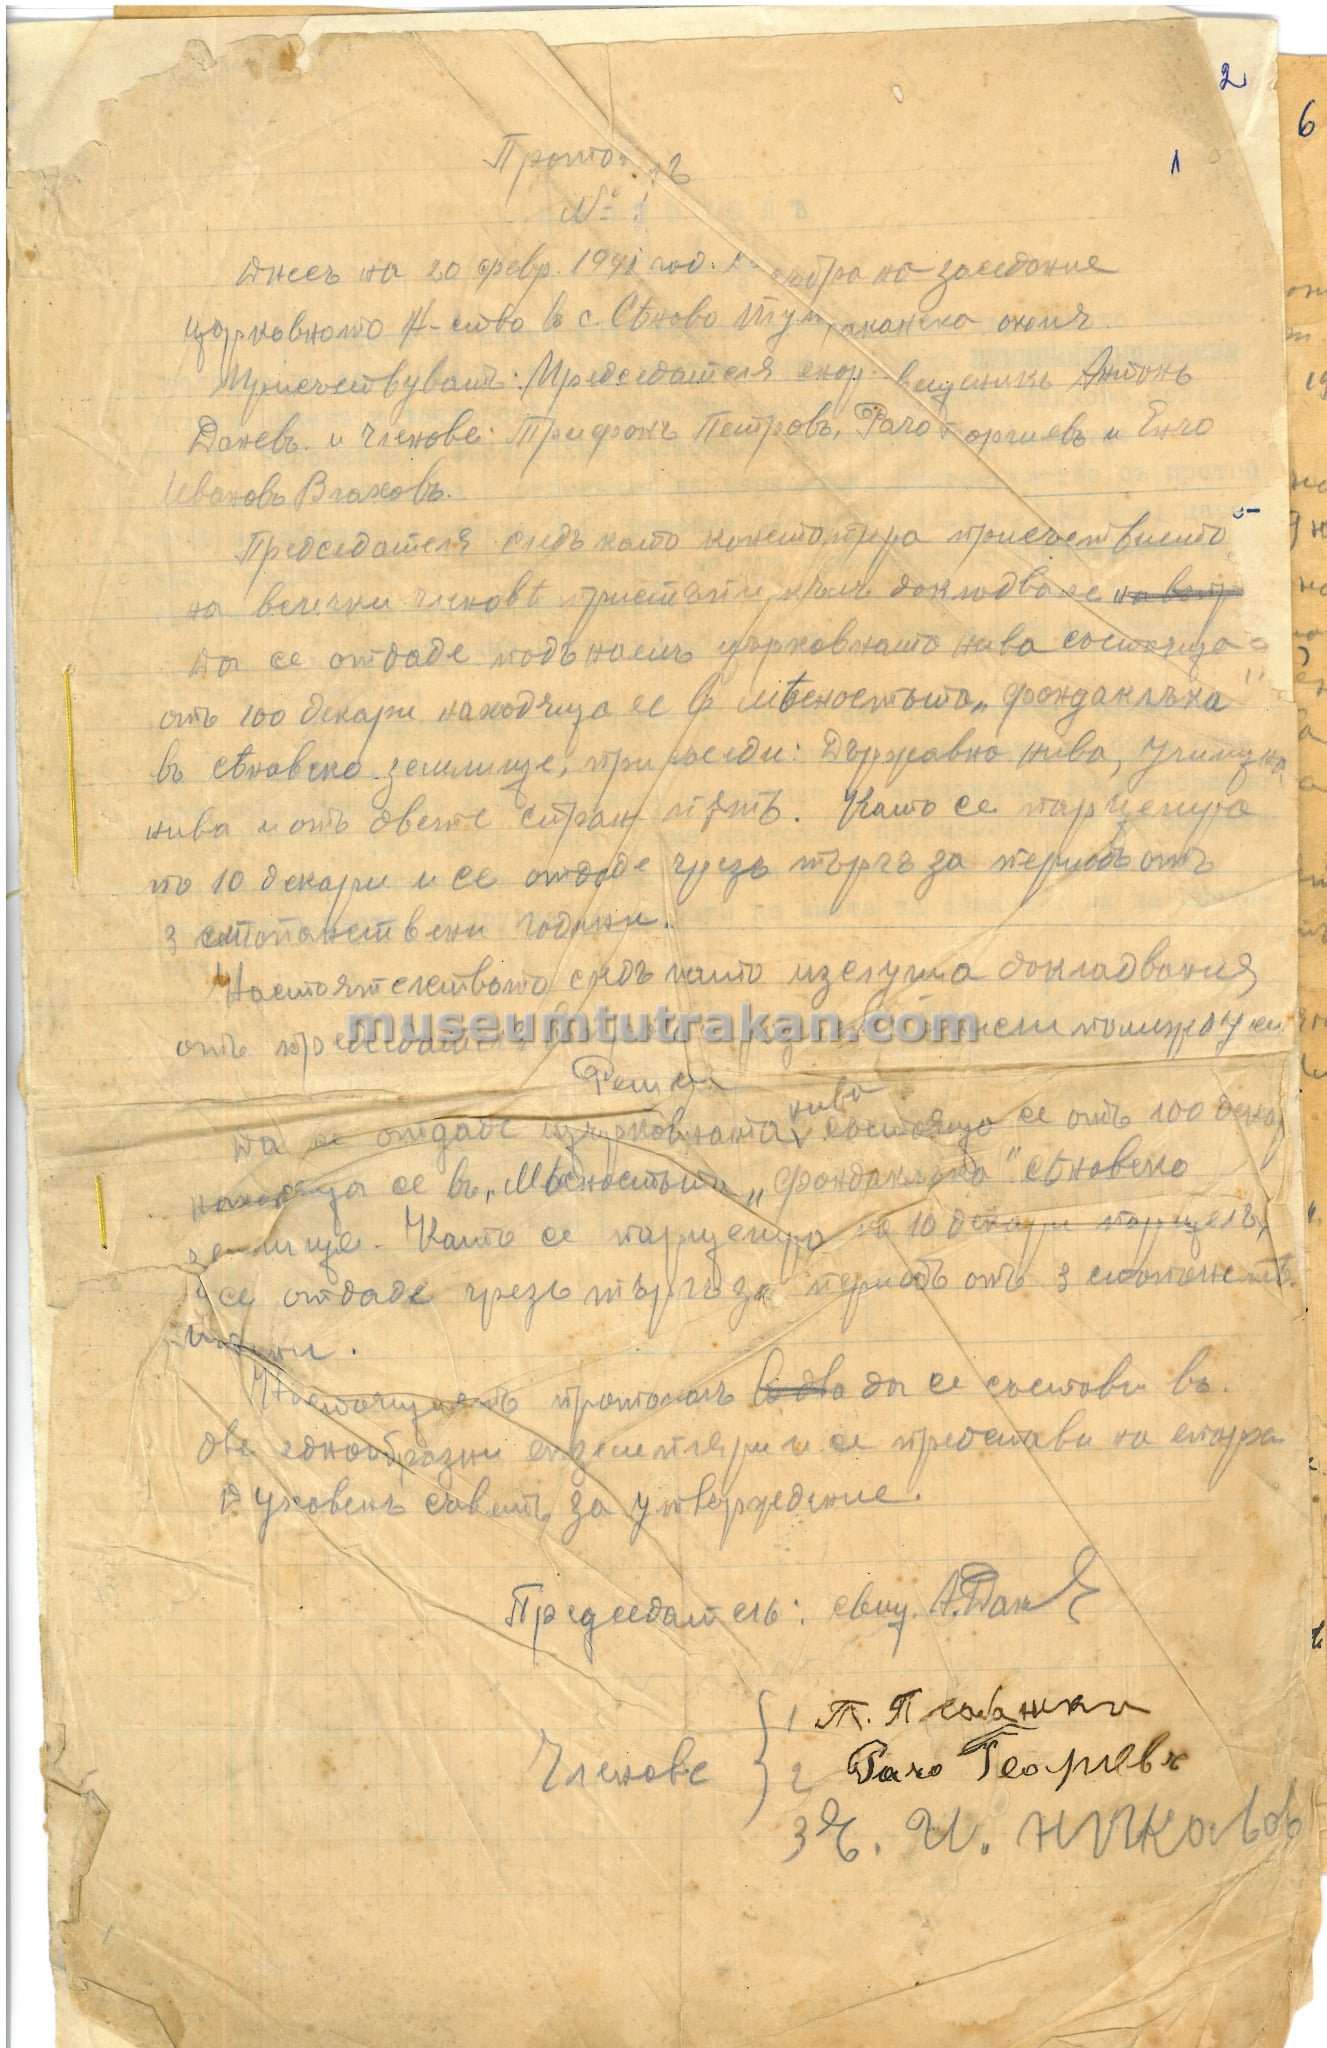 2
6
1
Прото лъ
№ 1
Днесъ на 20 февр. 1941 год. събра на заседание
църковното Н-ство въ с. Сѣново Тутраканска околия
Присѫствуватъ: Председателя свещеникъ Антонъ
Даневъ и членове: Трифонъ Петровъ, Рачо Георгиевъ и Енчо
Ивановъ Влаховъ.
Председателя следъ като констатира присѫствието
на всички членовѣ пристѫпи къмъ докладване
да се отдаде подъ наемъ църковната нива состояща
отъ 100 декари находяща се в мѣсностьта „Фондаклъка"
въ сѣновско землище, при съседи: Държавна нива, Училищна
нива и отъ двете стран пѫть. Като се парцелира
по 10 декари и се отдаде чрезъ търгъ за периодъ отъ
3 стопанствени години.
Настоятелството следъ като изслуша докладвания
отъ председателя
museumtutrakan.com
Реши
нива
Да се отдаде църковната состояща се отъ 100 декар
находяща се въ „Мѣсностьта „Фондаклъка" сѣновско
землище. Като се парцелира на 10 декари парцелъ,
и се отдаде чрезъ търгъ за периодъ отъ 3 стопанств.
години.
Настоящиятъ протоколъ да се состави въ
две еднообразни екземпляри и се представи на епарх.
Духовенъ съветъ за утвърждение.
Председатель: свещ. А. Дан
Членове
1 Т. П
2 Рачо Георгиевъ
3 Е. И.